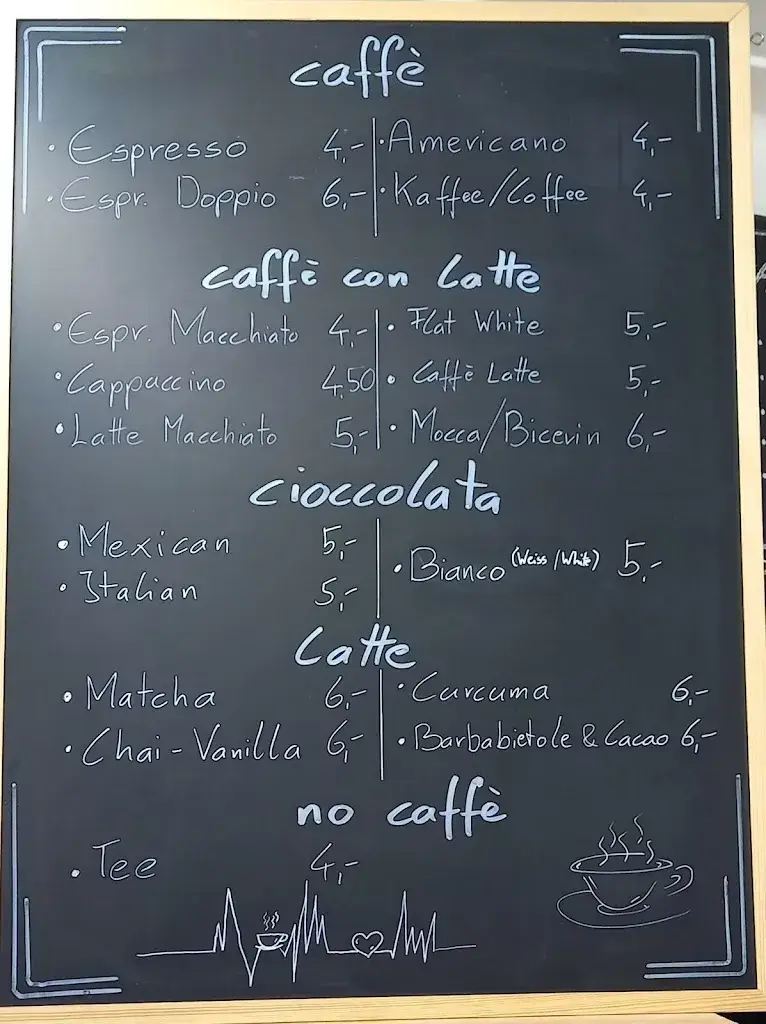 caffè
• Espresso 4,- • Americano 4,-
• Espr. Doppio 6,- • Kaffee/Coffee 4,-
caffè con latte
• Espr. Macchiato 4,- • Flat White 5,-
• Cappuccino 4,50 • Caffè Latte 5,-
• Latte Macchiato 5,- • Mocca/Bicerin 6,-
cioccolata
• Mexican 5,-
• Bianco (Weiss/White) 5,-
• Italian 5,-
Latte
• Matcha 6,- • Curcuma 6,-
• Chai-Vanilla 6,- • Barbabietole & Cacao 6,-
no caffè
• Tee 4,-